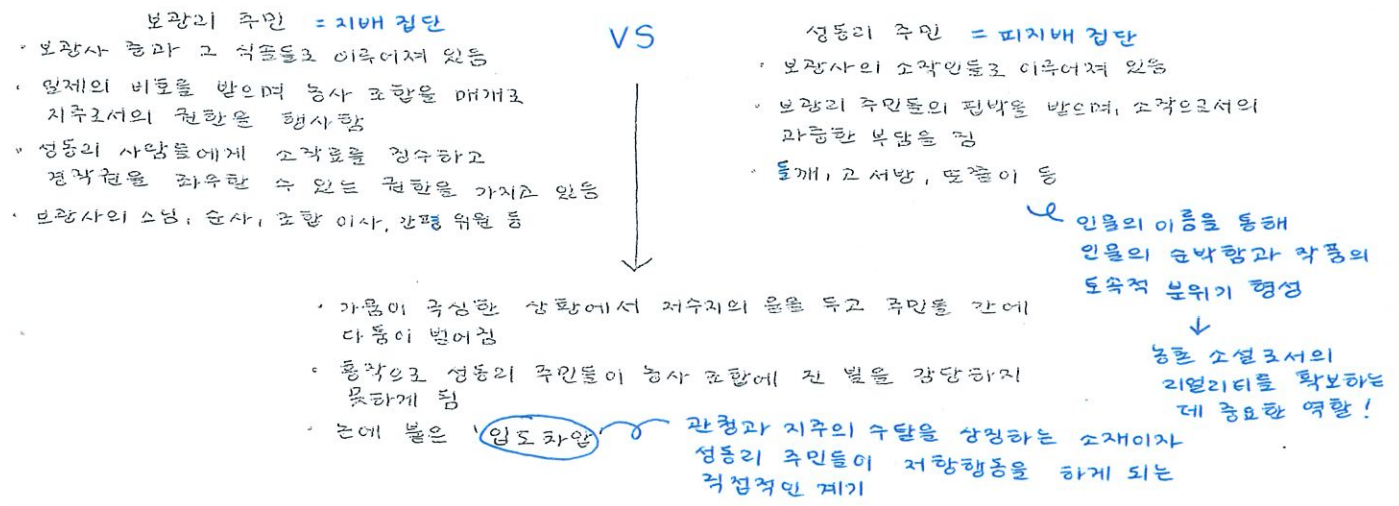 보광리 주민 = 지배 집단
· 보광사 중과 그 식솔들로 이루어져 있음
· 일제의 비호를 받으며 농사 조합을 매개로
지주로서의 권한을 행사함
· 성동리 사람들에게 소작료를 징수하고
경작권을 좌우할 수 있는 권한을 가지고 있음
· 보광사의 스님, 순사, 조합 이사, 간평 위원 등
VS
성동리 주민 = 피지배 집단
· 보광사의 소작인들로 이루어져 있음
· 보광리 주민들의 핍박을 받으며, 소작으로서의
과중한 부담을 짐
· 들깨, 고 서방, 또쭐이 등
인물의 이름을 통해
인물의 순박함과 작품의
토속적 분위기 형성
↓
농촌 소설로서의
리얼리티를 확보하는
데 중요한 역할!
· 가뭄이 극심한 상황에서 저수지의 물을 두고 주민들 간에
다툼이 벌어짐
· 흉작으로 성동리 주민들이 농사 조합에 진 빚을 감당하지
못하게 됨
· 논에 붙은 '입도차압'
관청과 지주의 수탈을 상징하는 소재이자
성동리 주민들이 저항행동을 하게 되는
직접적인 계기